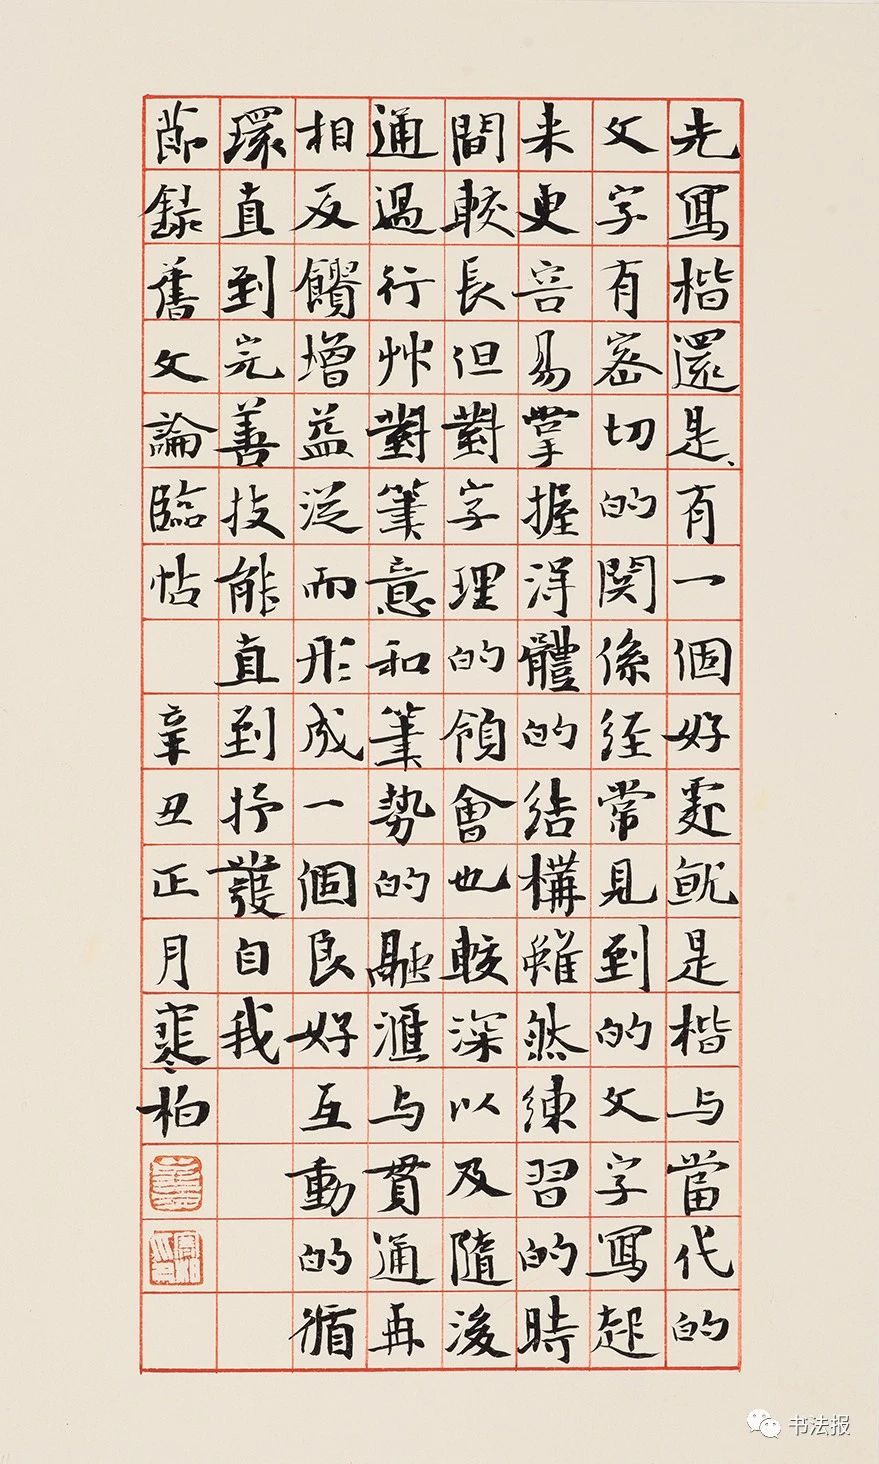 先寫楷還是有一個好處就是楷与當代的
文字有密切的関係經常見到的文字寫起
来更容易掌握得體的結構雖然練習的時
間較長但對字理的領會也較深以及隨後
通過行艸對筆意和筆勢的融滙与貫通再
相反饋增益從而形成一個良好互動的循
環直到完善技能直到抒發自我
節録舊文論臨帖 辛丑正月寒柏
书法报